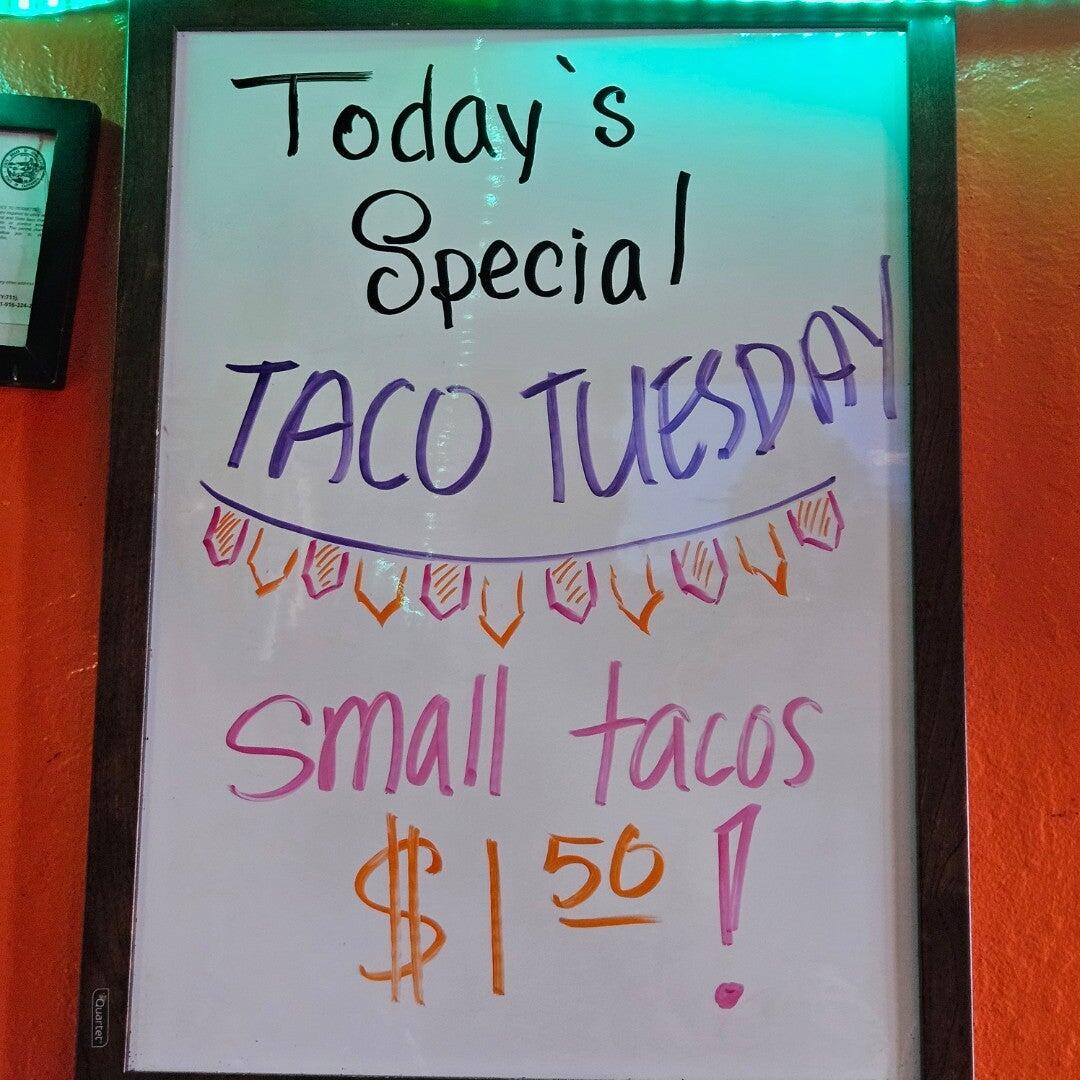 Today's
Special
TACO TUESDAY
small tacos
$1 50 !
Quartet